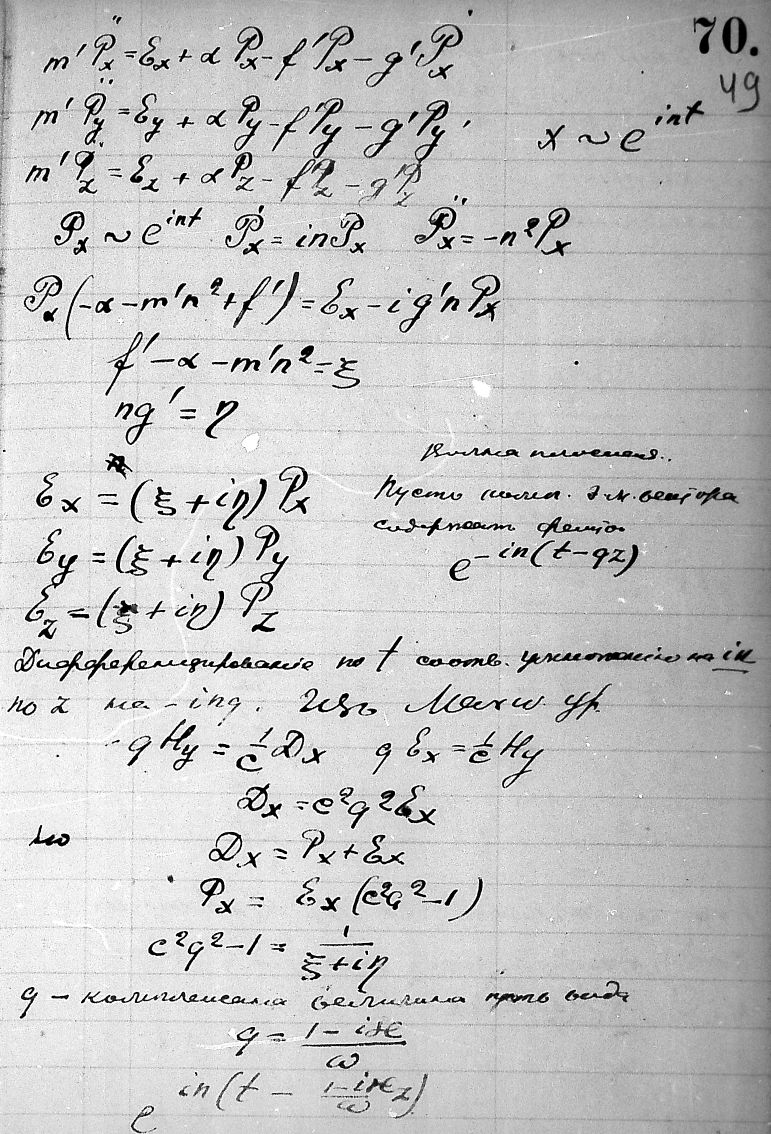 70.
49
m'P̈x = Ɛx + αPx - f'Px - g'Ṗx
m'P̈y = Ɛy + αPy - f'Py - g'Ṗy
x ~ e^int
m'P̈z = Ɛz + αPz - f'Pz - g'Ṗz
Px ~ e^int Ṗx = inPx P̈x = -n²Px
Px(-α - m'n² + f') = Ɛx - ig'nPx
f' - α - m'n² = ξ
ng' = η
Волна плоская.
Ɛx = (ξ + iη)Px
Пусть комп. э.м. вектора
содержат
Ɛy = (ξ + iη)Py
e^-in(t-qz)
Ɛz = (ξ + iη)Pz
Дифференцирование по t соотв. умножению на in
по z на -inq. Изъ Максw. ур.
qHy = 1/c Dx qƐx = 1/c Hy
Dx = c²q²Ɛx
но
Dx = Px + Ɛx
Px = Ɛx(c²q² - 1)
c²q² - 1 = 1/(ξ + iη)
q - комплексная величина пусть вида
q = (1 - iϰ)/ω
e^in(t - (1-iϰ)/ω z)